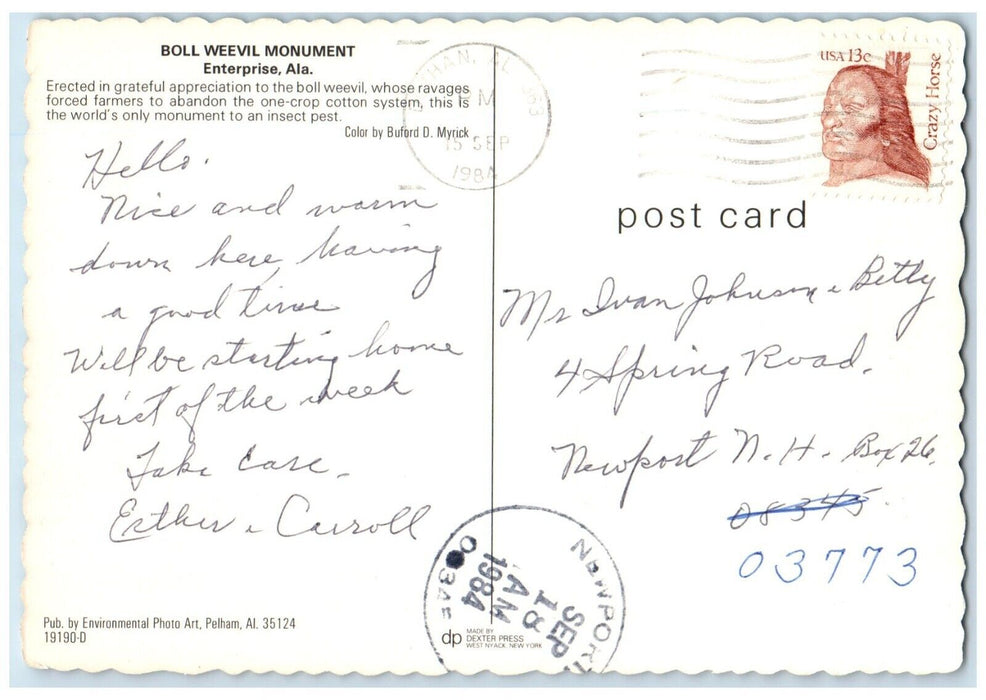 BOLL WEEVIL MONUMENT
Enterprise, Ala.
Erected in grateful appreciation to the boll weevil, whose ravages
forced farmers to abandon the one-crop cotton system, this is
the world's only monument to an insect pest.
Color by Buford D. Myrick
Hello.
Nice and warm
down here, having
a good time
Will be starting home
first of the week
Take Care.
Esther & Carroll
Pub. by Environmental Photo Art, Pelham, Al. 35124
19190-D
THAN, AL 363
M
15 SEP
1984
USA 13c
Crazy Horse
post card
Mr Ivan Johnson & Betty
4 Spring Road.
Newport N.H. Box 26.
08345.
03773
NEWPORT
SEP
18
AM
1984
dp
MADE BY
DEXTER PRESS
WEST NYACK, NEW YORK